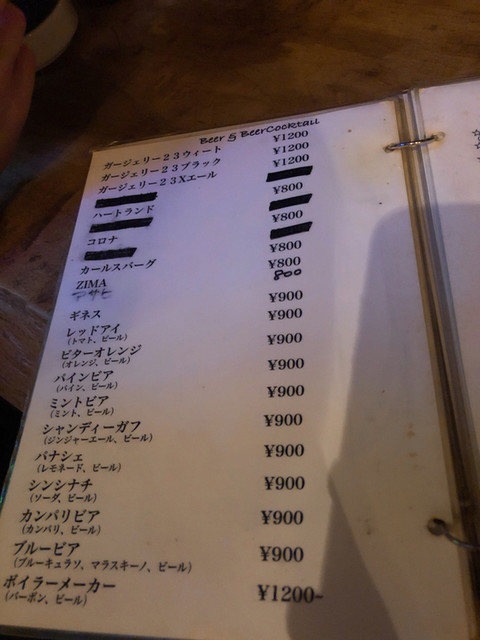 Beer & BeerCocktail
ガージェリー２３ウィート ¥1200
ガージェリー２３ブラック ¥1200
ガージェリー２３Xエール ¥1200
ハートランド ¥800
コロナ ¥800
カールスバーグ ¥800
ZIMA ¥800
アサヒ 800
ギネス ¥900
レッドアイ ¥900
（トマト、ビール）
ビターオレンジ ¥900
（オレンジ、ビール）
パインビア ¥900
（パイン、ビール）
ミントビア ¥900
（ミント、ビール）
シャンディーガフ ¥900
（ジンジャーエール、ビール）
パナシェ ¥900
（レモネード、ビール）
シンシナチ ¥900
（ソーダ、ビール）
カンパリビア ¥900
（カンパリ、ビール）
ブルービア ¥900
（ブルーキュラソ、マラスキーノ、ビール）
ボイラーメーカー ¥1200-
（バーボン、ビール）